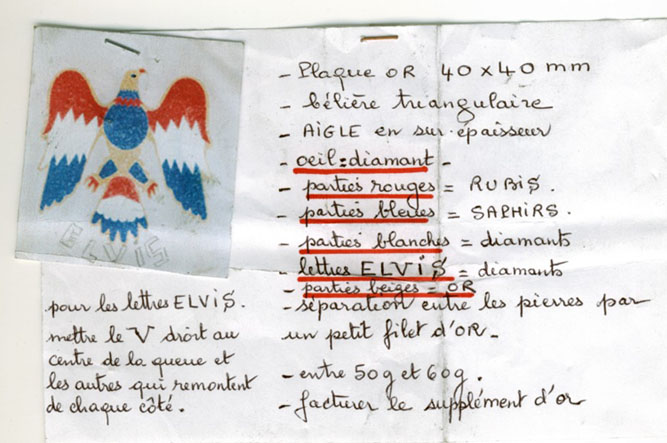 ELVIS
- Plaque OR 40 x 40 mm
- bélière triangulaire
- AiGLE en sur-épaisseur
- oeil = diamant -
- parties rouges = RUBiS.
- parties bleues = SAPHiRS.
- parties blanches = diamants
- lettres ELViS = diamants
- parties beiges = OR
- séparation entre les pierres par
un petit filet d'OR -
- entre 50g et 60g.
- facturer le supplément d'or
pour les lettres ELViS.
mettre le V droit au
centre de la queue et
les autres qui remontent
de chaque côté.